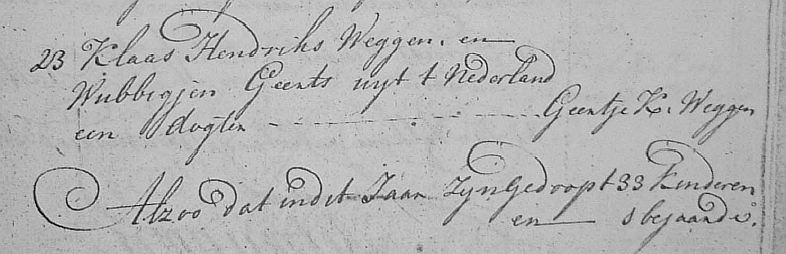 23 Klaas Hendriks Weggen. en
Wubbegjen Geerts uyt t Nederland
een dogter - - - - - - - - Geertje K. Weggen
Alzoo dat in dit Jaar zyn Gedoopt 33 Kinderen
en bejaarde.